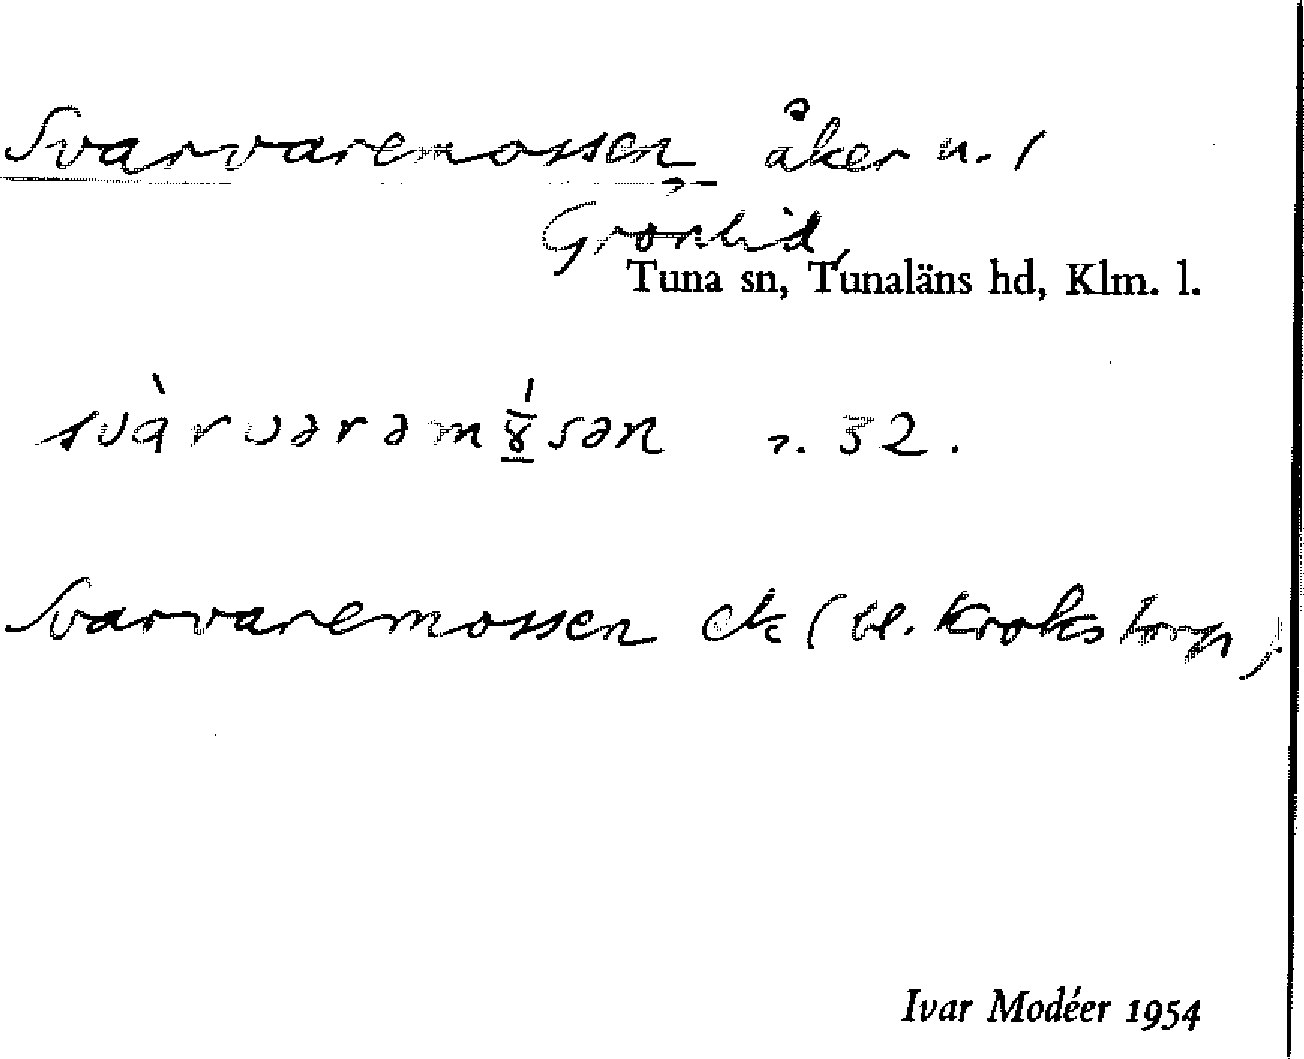 Svarvaremossen åker n. 1
Grönlid,
Tuna sn, Tunaläns hd, Klm. l.
svàrvərəm8́sən r. 32.
Svarvaremossen ek (bl. Krokstorp)
Ivar Modéer 1954